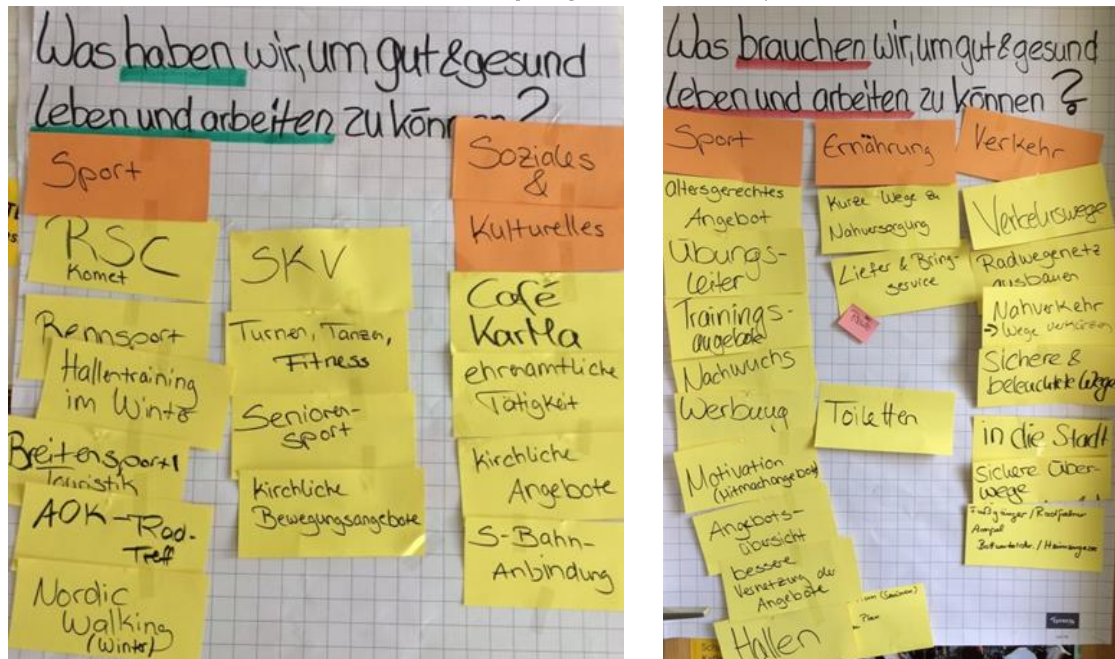 Was haben wir, um gut & gesund
leben und arbeiten zu können ?
Sport
RSC
Komet
Rennsport
Hallentraining
im Winter
Breitensport/
Touristik
AOK-Rad-
Treff
Nordic
Walking
(Winter)
SKV
Turnen, Tanzen,
Fitness
Senioren-
sport
Kirchliche
Bewegungsangebote
Soziales
&
Kulturelles
Café
KarMa
ehrenamtliche
Tätigkeit
Kirchliche
Angebote
S-Bahn-
Anbindung
Was brauchen wir, um gut & gesund
leben und arbeiten zu können ?
Sport
altersgerechtes
Angebot
Übungs-
leiter
Trainings-
angebote
Nachwuchs
Werbung
Motivation
(Mitmachangebote)
Angebots-
übersicht
bessere
Vernetzung der
Angebote
Hallen
Plan
Ernährung
Kurze Wege zu
Nahversorgung
Liefer & Bring-
service
Toiletten
Verkehr
Verkehrswege
Radwegenetz
ausbauen
Nahverkehr
→ Wege verkürzen
Sichere &
beleuchtete Wege
in die Stadt
Sichere Über-
wege
Fußgänger / Radfahrer
Ampel